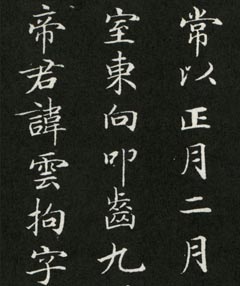 常以正月二月
室東向叩齒九
帝君諱雲拘字